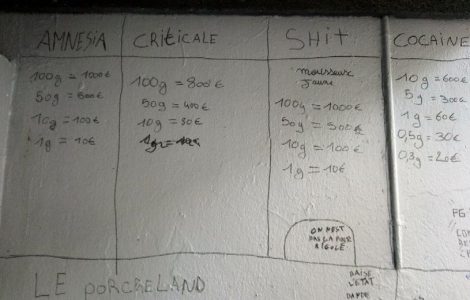 AMNESIA
100g = 1000€
50g = 500€
10g = 100€
1g = 10€
CRITICALE
100g = 800€
50g = 400€
10g = 80€
SHIT
mousseux
jaune
100g = 1000€
50g = 500€
10g = 100€
1g = 10€
ON N'EST
PAS LA POUR
RIGOLÉ
COCAINE
10g = 600€
5g = 300€
1g = 60€
0,5g = 30€
0,3g = 20€
LE
BAISE
L'ETAT